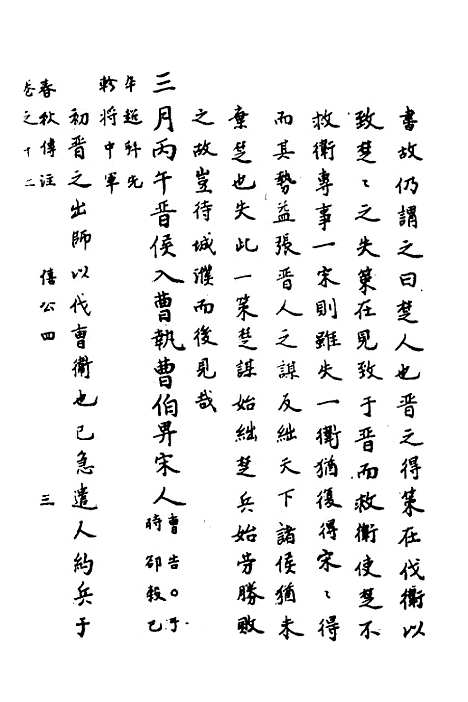 書故仍謂之曰楚人也晉之得策在伐衞以
致楚〻之失策在見致于晉而救衞使楚不
救衞專事一宋則雖失一衞猶復得宋〻得
而其勢益張晉人之謀反絀天下諸侯猶未
棄楚也失此一策楚謀始絀楚兵始勞勝敗
之故豈待城濮而後見哉
三月丙午晉侯入曹執曹伯畀宋人曹告〇于時郤縠已
卒趙衰先軫將中軍
初晉之出師以伐曹衞也已急遣人約兵于
春秋傳注 僖公四 三
卷之十二